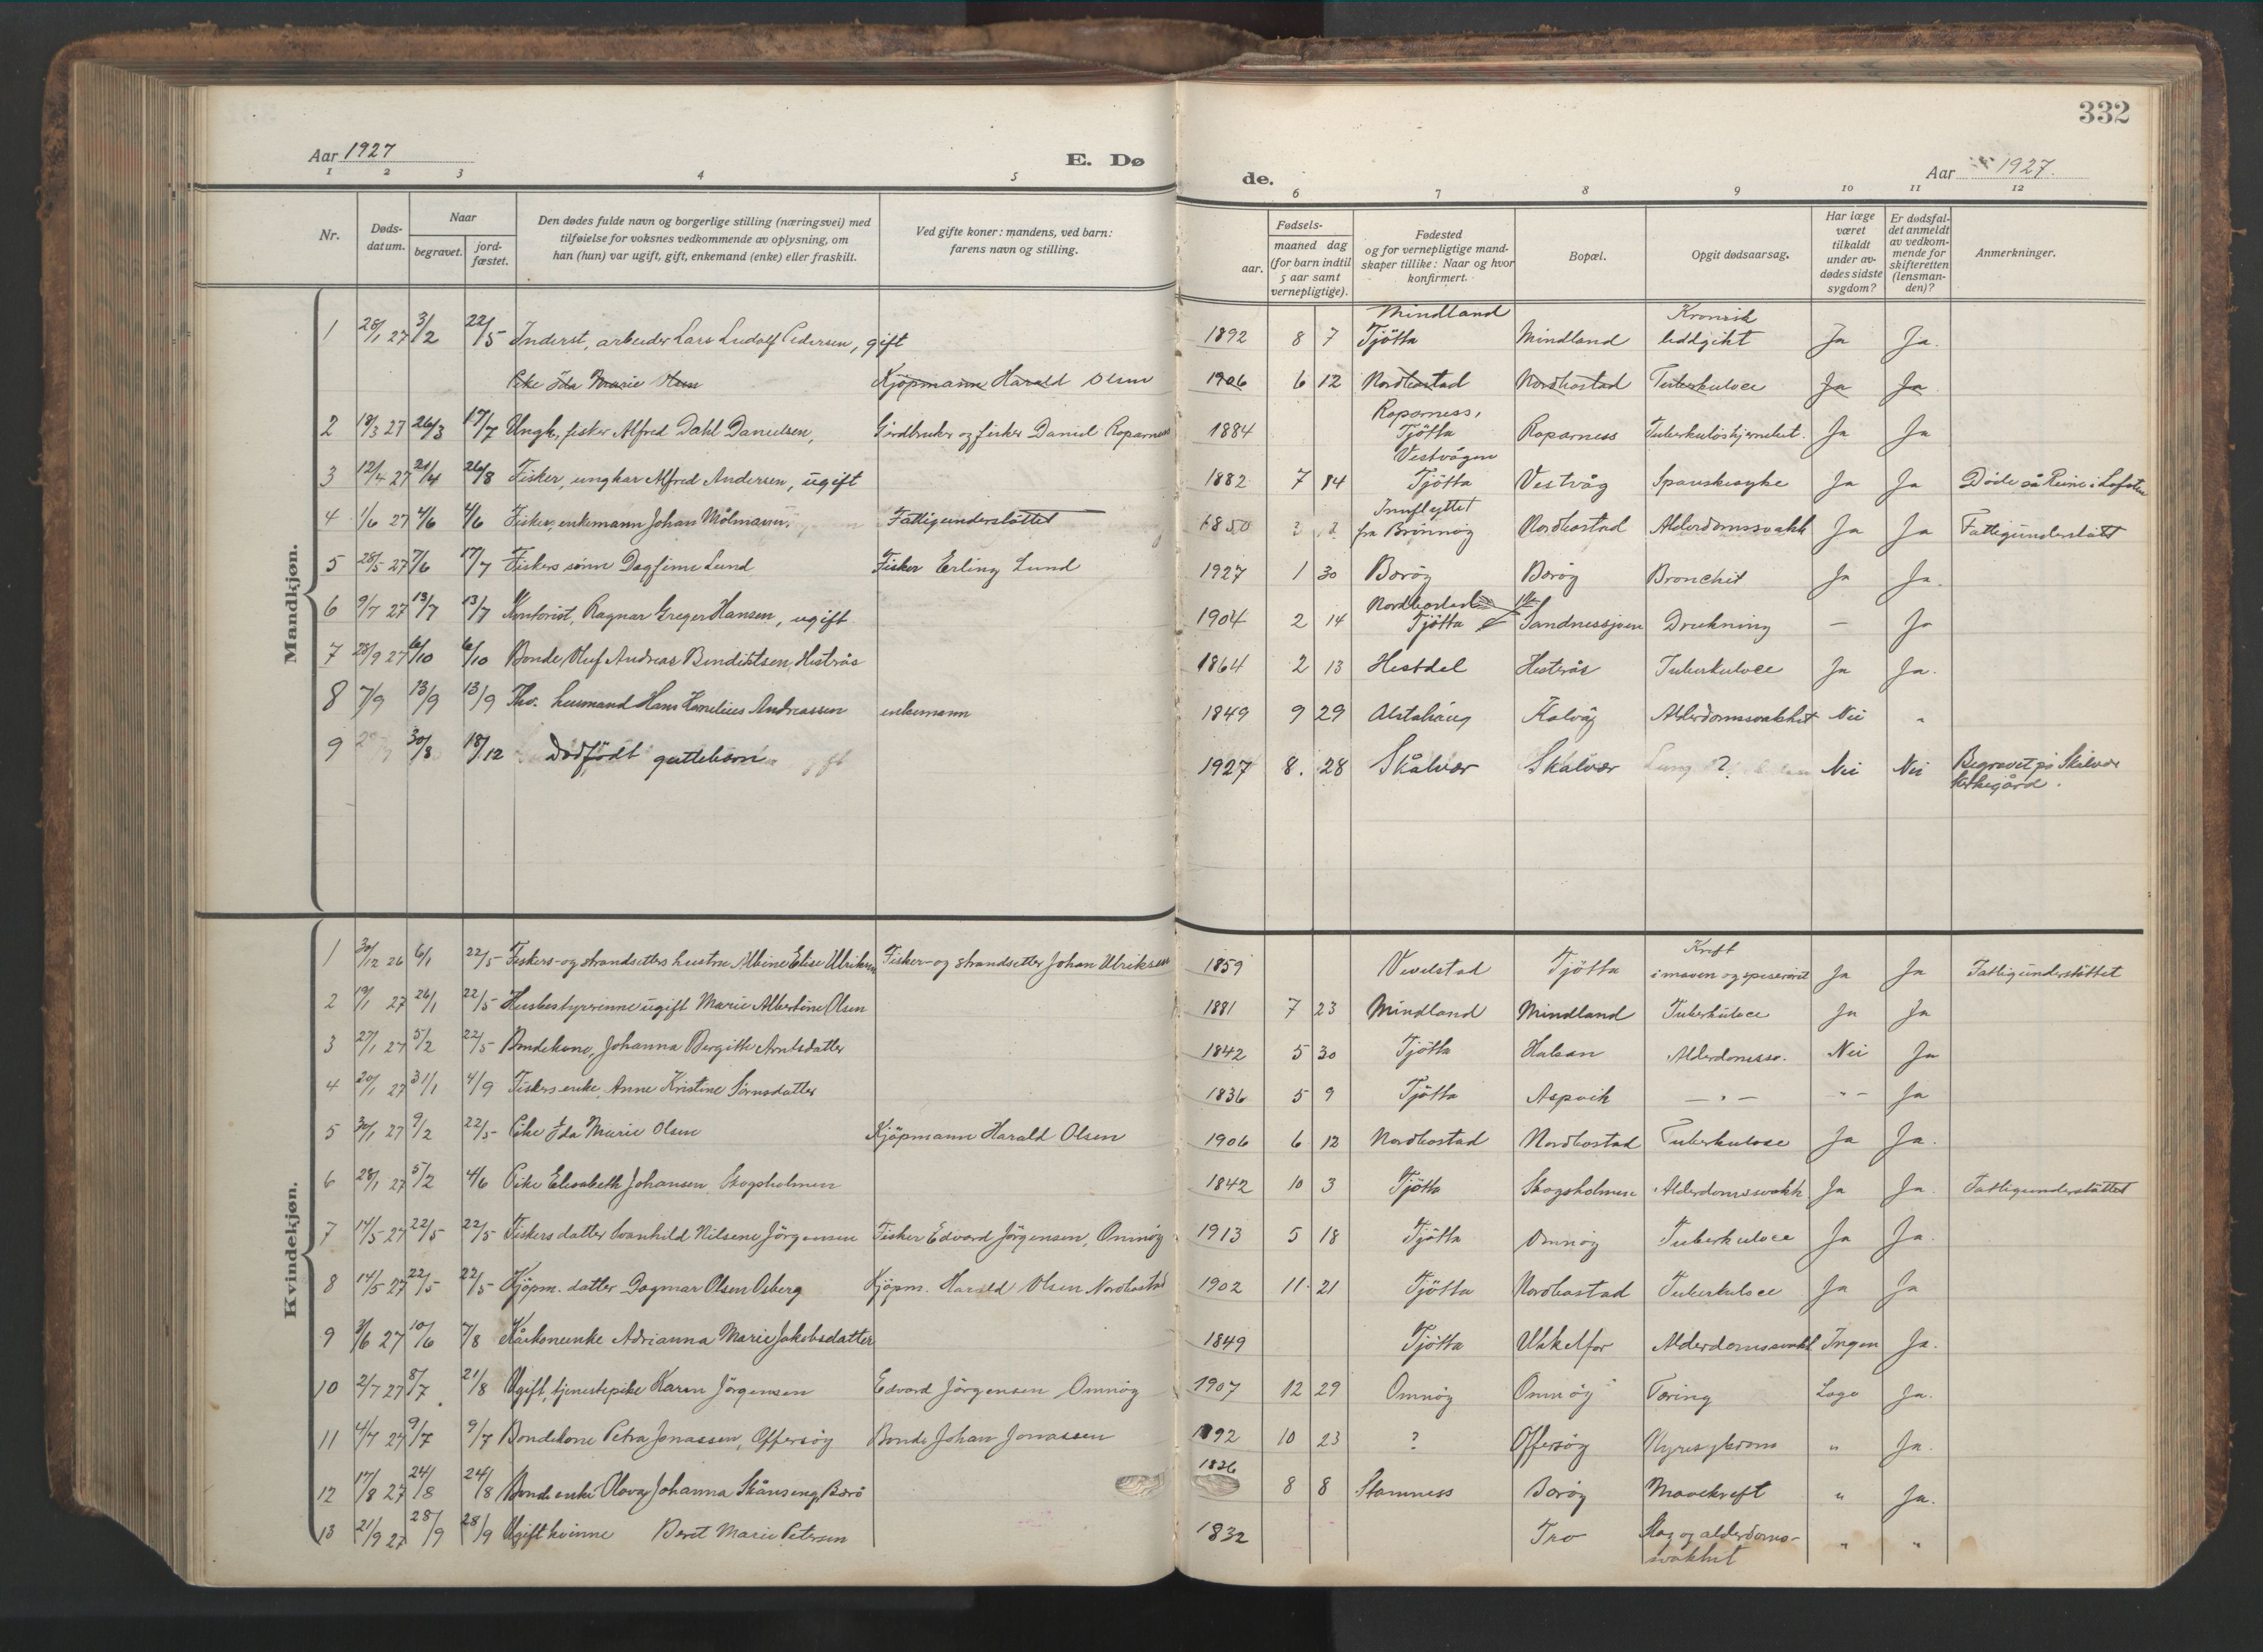 332
Aar 1927 E. Dø de. Aar 1927.
1 2 3 4 5 6 7 8 9 10 11 12
Nr. Døds-datum. Naar begravet. jord-fæstet. Den dødes fulde navn og borgerlige stilling (næringsvei) med tilføielse for voksnes vedkommende av oplysning, om han (hun) var ugift, gift, enkemand (enke) eller fraskilt. Ved gifte koner: mandens, ved barn: farens navn og stilling. Fødsels- aar. maaned dag (for barn indtil 5 aar samt vernepligtige). Fødested og for vernepligtige mand-skaper tillike: Naar og hvor konfirmert. Bopæl. Opgit dødsaarsag. Har læge været tilkaldt under av-dødes sidste sygdom? Er dødsfal-det anmeldt av vedkom-mende for skifteretten (lensman-den)? Anmerkninger.
Mandkjøn.
1 28/1 27 3/2 22/5 Inderst, arbeider Lars Ludolf Pedersen, gift 1892 8 7 Mindland Tjötta Mindland Kronisk leddgikt Ja Ja.
Pike Ida Marie Olsen Kjöpmann Harald Olsen 1906 6 12 Nordbostad Nordbostad Tuberkulose Ja Ja
2 19/3 27 26/3 17/7 Ungk, fisker Alfred Dahl Danielsen, Gårdbruker og fisker Daniel Roparness 1884 Roparness, Tjötta Roparness Ja Ja
3 12/4 27 21/4 26/8 Fisker, ungkar Alfred Andersen, ugift 1882 7 14 Vestvågen Tjötta Vestvåg Spanskesyke Ja Ja Döde på Reine i Lofoten
4 1/6 27 4/6 4/6 Fisker, enkemann Johan Mölmann. Fattigunderstöttet 1850 ? ? Innflyttet fra Brönnöy Nordbostad Alderdomssvakh Ja Ja Fattigunderstött
5 28/5 27 7/6 17/7 Fiskers sönn Dagfinn Lund Fisker Erling Lund 1927 1 30 Boröy Boröy Bronchit Ja Ja.
6 9/7 27 13/7 13/7 Kontorist, Ragnar Greger Hansen, ugift 1904 2 14 Nordbostad Tjötta Sandnessjøen Drukning — Ja
7 28/9 27 6/10 6/10 Bonde Oluf Andreas Bendiktsen, Hesterås 1864 2 13 Hestdel Hesterås Tuberkulose Ja Ja.
8 7/9 13/9 13/9 Fhv. husmand Hans Kornelius Andreassen enkemann 1849 9 29 Alstahaug Kalvåg Alderdomssvakhet Nei "
9 30/8 18/12 Dødfödt guttebarn 1927 8. 28 Skålvær Skålvær ? Nei Nei Begravet på Skålvær kirkegård.
Kvindekjøn.
1 30/12 26 6/1 22/5 Fiskers- og strandsitters hustru Albine Elise Ulriksen Fisker- og strandsitter Johan Ulriksen 1859 Vevelstad Tjötta Kreft i maven og spiserøret Ja Ja Fattigunderstöttet
2 19/1 27 26/1 22/5 Husbestyrerinne ugift Marie Albertine Olsen 1881 7 23 Mindland Mindland Tuberkulose Ja Ja
3 27/1 27 5/2 22/5 Bondekone, Johanna Birgitte Arntsdatter 1842 5 30 Tjötta Halsan Alderdomssv. Nei Ja
4 20/1 27 31/1 4/9 Fiskers enke, Anne Kristine Sörnsdatter 1836 5 9 Tjötta Aspvik — " — " — Ja
5 30/1 27 9/2 22/5 Pike Ida Marie Olsen Kjöpmann Harald Olsen 1906 6 12 Nordbostad Nordbostad Tuberkulose Ja Ja.
6 28/1 27 5/2 4/6 Pike Elisabeth Johansen Skogsholmen 1842 10 3 Tjötta Skogsholmen Alderdomssvakh Ja Ja. Fattigunderstöttet
7 14/5 27 22/5 22/5 Fiskers datter Svanhild Nilsene Jörgensen Fisker Edvard Jörgensen, Omnöy 1913 5 18 Tjötta Omnöy Tuberkulose Ja Ja.
8 14/5 27 22/5 22/5 Kjöpm. datter Dagmar Olsen Osberg Kjöpm. Harald Olsen Nordbostad 1902 11 21 Tjötta Nordbostad Tuberkulose Ja Ja
9 3/6 27 10/6 7/8 Kårkoneenke Adrianna Marie Jakobsdatter 1849 Tjötta Alderdomssvakh Ingen Ja.
10 2/7 27 8/7 21/8 Ugift, tjenestepike Karen Jörgensen Edvard Jörgensen Omnöy 1907 12 29 Omnöy Omnöy Tæring Læge Ja.
11 4/7 27 9/7 9/7 Bondekone Petra Jonassen, Offersöy Bonde Johan Jonassen 1892 10 23 ? Offersöy Nyresykdom " Ja.
12 17/8 27 24/8 24/8 Bondeenke Olava Johanna Skånseng, Borö 1836 8 8 Stamness Boröy Mavekreft " Ja.
13 21/9 27 28/9 28/9 Ugift kvinne Beret Marie Petersen 1832 Tro Slag og alderdoms-svakhet " "